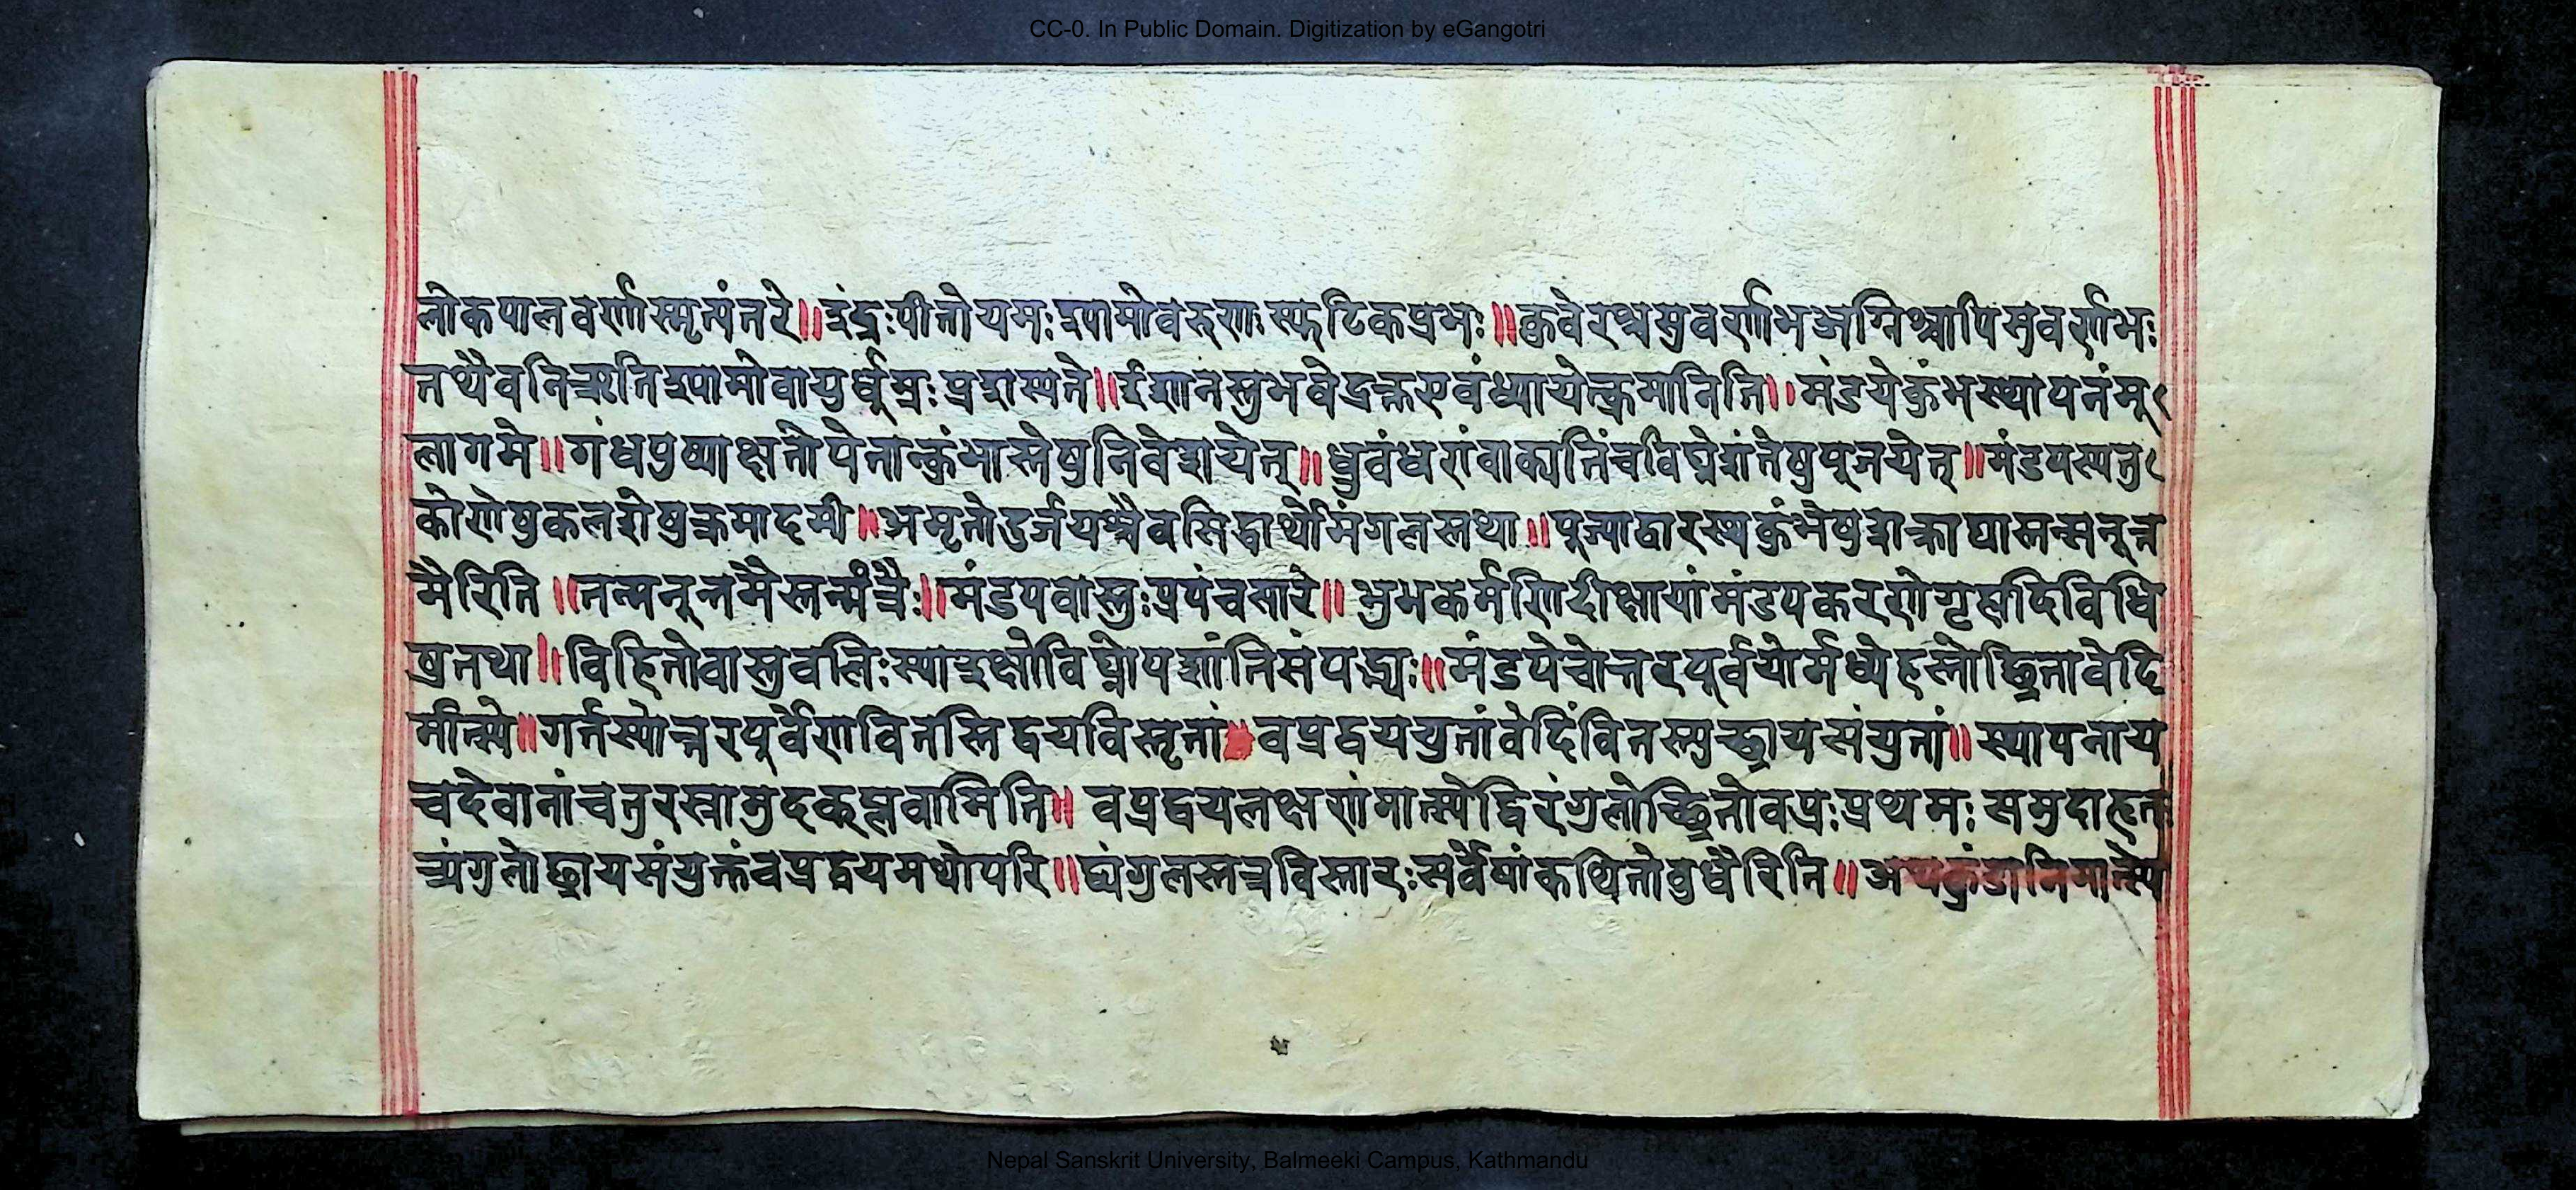 CC-0. In Public Domain. Digitization by eGangotri
लोकपालवर्णास्मृत्यंतरे॥इंद्रःपीतोयमःश्यामोवरुणःस्फटिकप्रभः॥कुवेरश्चसुवर्णाभअग्निश्चापिसुवर्णभः
तथैवनिऋतिश्यामोवायुर्धूम्रःप्रशस्यते॥ईशानस्तुभवेद्रक्तएवंध्यायेत्क्रमानिति॥मंडपेकुंभस्थापनंमू
लागमे॥गंधपुष्पाक्षतोपेतान्कुंभास्तेषुनिवेशयेत्॥ध्रुवंधरांवाक्पतिंचविघ्नेशंतेषुपूजयेत्॥मंडपस्यतु
कोणेषुकलशेषुक्रमादमी॥अमृतोदुर्जयश्चैवसिद्धार्थोमंगलस्तथा॥पूज्याद्वारस्थकुंभेषुशक्राद्यास्तन्मनूत्त
मैरिति॥तन्मनूत्तमैस्तन्मंत्रैः॥मंडपवास्तुःप्रपंचसारे॥शुभकर्मणिदीक्षायांमंडपकरणेगृहादिविधि
षुतथा॥विहितोवास्तुवलिःस्याद्रक्षोविघ्नोपशांतिसंपद्भ्यः॥मंडपेचोत्तरपूर्वयोर्मध्येहस्तोच्छ्रितावेदि
र्मात्स्ये॥गर्तस्योत्तरपूर्वेणवितस्तिद्वयविस्तृतां वप्रद्वययुतांवेदिंवितस्त्युच्छ्रायसंयुतां॥स्थापनाय
चदेवानांचतुरस्त्रामुदक्प्लवामिति॥वप्रद्वयलक्षणंमात्स्येद्विरंगुलोच्छ्रितोवप्रःप्रथमःसमुदाहृतः
त्र्यंगुलोछ्रायसंयुक्तंवप्रद्वयमथोपरि॥द्व्यंगुलस्तत्रविस्तारःसर्वेषांकथितोवुधैरिति॥अथकुंडानिमात्स्ये
Nepal Sanskrit University, Balmeeki Campus, Kathmandu